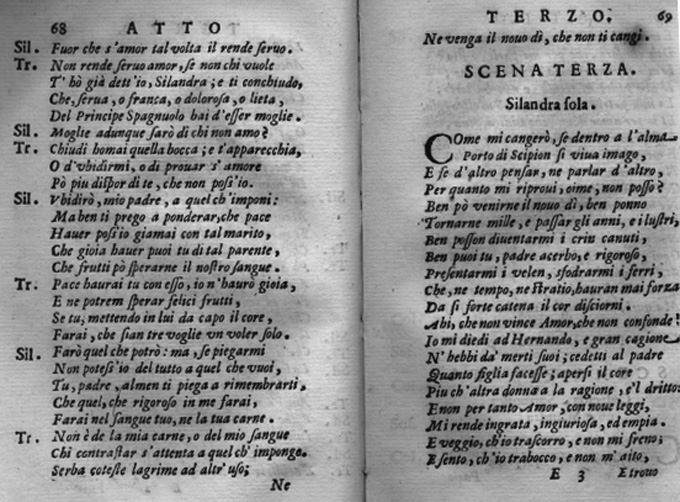 68 ATTO
Sil. Fuor che s'amor tal volta il rende seruo.
Tr. Non rende seruo amor, se non chi vuole
T'hò già dett'io, Silandra; e ti conchiudo,
Che, serua, o franca, o dolorosa, o lieta,
Del Principe Spagnuolo hai d'esser moglie.
Sil. Moglie adunque sarò di chi non amo?
Tr. Chiudi homai quella bocca; e t'apparecchia,
O d'vbidirmi, o di prouar s'amore
Pò piu dispor di te, che non poss'io.
Sil. Vbidirò, mio padre, a quel ch'imponi:
Ma ben ti prego a ponderar, che pace
Hauer poss'io giamai con tal marito,
Che gioia hauer puoi tu di tal parente,
Che frutti pò sperarne il nostro sangue.
Tr. Pace haurai tu con esso, io n'haurò gioia,
E ne potrem sperar felici frutti,
Se tu, mettendo in lui da capo il core,
Farai, che sian tre voglie vn voler solo.
Sil. Farò quel che potrò: ma, se piegarmi
Non potess'io del tutto a quel che vuoi,
Tu, padre, almen ti piega a rimembrarti,
Che quel, che rigoroso in me farai,
Farai nel sangue tuo, ne la tua carne.
Tr. Non è de la mia carne, o del mio sangue
Chi contrastar s'attenta a quel ch'impongo.
Serba coteste lagrime ad altr'uso;
Ne
TERZO. 69
Ne venga il nouo dì, che non ti cangi.
SCENA TERZA.
Silandra sola.
COme mi cangerò, se dentro a l'alma
Porto di Scipion si viua imago,
E se d'altro pensar, ne parlar d'altro,
Per quanto mi riproui, oime, non posso?
Ben pò venirne il nouo dì, ben ponno
Tornarne mille, e passar gli anni, e i lustri,
Ben posson diuentarmi i crin canuti,
Ben puoi tu, padre acerbo, e rigoroso,
Presentarmi i velen, sfodrarmi i ferri,
Che, ne tempo, ne stratio, hauran mai forza
Da si forte catena il cor disciorni.
Ahi, che non vince Amor, che non confonde?
Io mi diedi ad Hernando, e gran cagione
N'hebbi da' merti suoi; cedetti al padre
Quanto figlia facesse; apersi il core
Piu ch'altra donna a la ragione, e'l dritto:
E non per tanto Amor, con noue leggi,
Mi rende ingrata, ingiuriosa, ed empia.
E veggio, ch'io trascorro, e non mi freno;
E sento, ch'io trabocco, e non m'aito,
E 3 E trouo